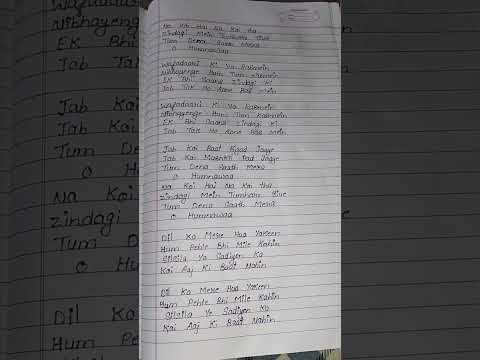 Na Koi Hai Na Koi tha
Zindagi Mein Tumhare Sive
Tum Dena Saath Mera
O Humnawaa
Wafadaari Ki Vo Rasmein
Nibhayenge Hum Tum Kasmein
EK Bhi Saans Zindagi Ki
Jab Tak Ho Apne Bas Mein
Wafadaari Ki Vo Rasmein
Nibhayenge Hum Tum Kasmein
EK Bhi Saans Zindagi Ki
Jab Tak Ho Apne Bas Mein
Jab Koi Baat Bigad Jaye
Jab Koi Mushkil Pad Jaye
Tum Dena Saath Mera
O Humnawaa
Na Koi Hai Na Koi tha
Zindagi Mein Tumhare Sive
Tum Dena Saath Mera
O Humnawaa
Dil Ko Mere Hua Yakeen
Hum Pehle Bhi Mile Kahin
Silsila Ye Sadiyon Ka
Koi Aaj Ki Baat Nahin
Dil Ko Mere Hua Yakeen
Hum Pehle Bhi Mile Kahin
Silsila Ye Sadiyon Ka
Koi Aaj Ki Baat Nahin